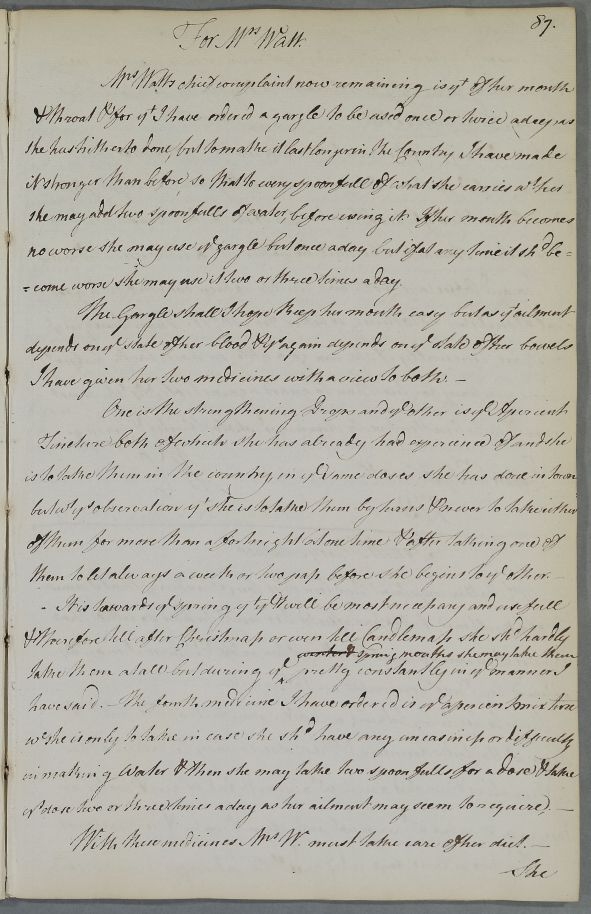 87.
For Mrs Watt.
Mrs Watts chief complaint now remaining is yt of her mouth
& throat & for yt I have ordered a gargle to be used once or twice a day as
she has hitherto done, but to make it last longer in the Country I have made
it stronger than before, so that to every spoonfull of what she carries wt her
she may add two spoonfulls of water, before using it. If her mouth becomes
no worse she may use ye gargle but once a day but if at any time it shd be=
=come worse she may use it two or three times a day.
The Gargle shall I hope keep her mouth easy but as yt ailment
depends on ye state of her blood & yt again depends on ye state of her bowels
I have given her two medicines with a view to both. —
One is the strengthening Drops and ye other is ye Aperient
Tincture both of which she has already had experience of and she
is to take them in the country in ye same doses she has done in town
but wt ys observation yt she is to take them by turns & never to take either
of them for more than a fortnight at one time & after taking one of
them to let always a week or two pass before she begins to ye other. —
- It is towards ye spring yt yy will be most necessary and usefull
& therefore till after Christmass or even till Candlemass she shd hardly
winter & spring months she may take them
take them at all but during ye pretty constantly in ye manner I
have said. — The fourth medicine I have ordered is ye aperient mixture
wc she is only to take in case she shd have any uneasiness or difficulty
in making Water & then she may take two spoonfulls for a dose & take
ye dose two or three times a day as her ailment may seem to require. —
With these medicines Mrs W. must take care of her diet. —
She